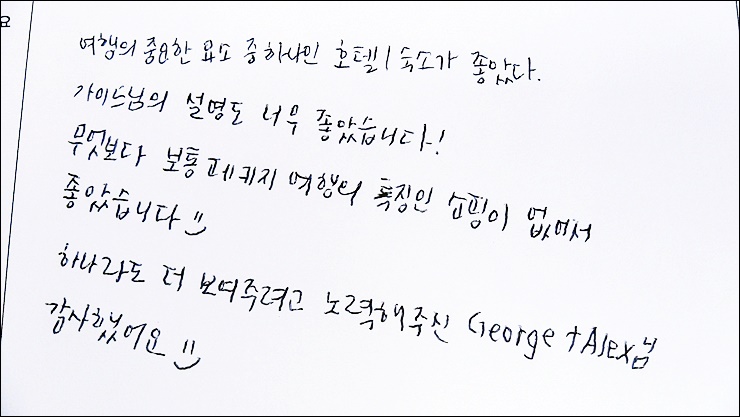 요
여행의 중요한 요소 중 하나인 호텔/숙소가 좋았다.
가이드님의 설명도 너무 좋았습니다!
무엇보다 보통 페키지 여행의 특징인 쇼핑이 없어서
좋았습니다 :)
하나라도 더 보여주려고 노력해주신 George + Alex님
감사했어요 :)